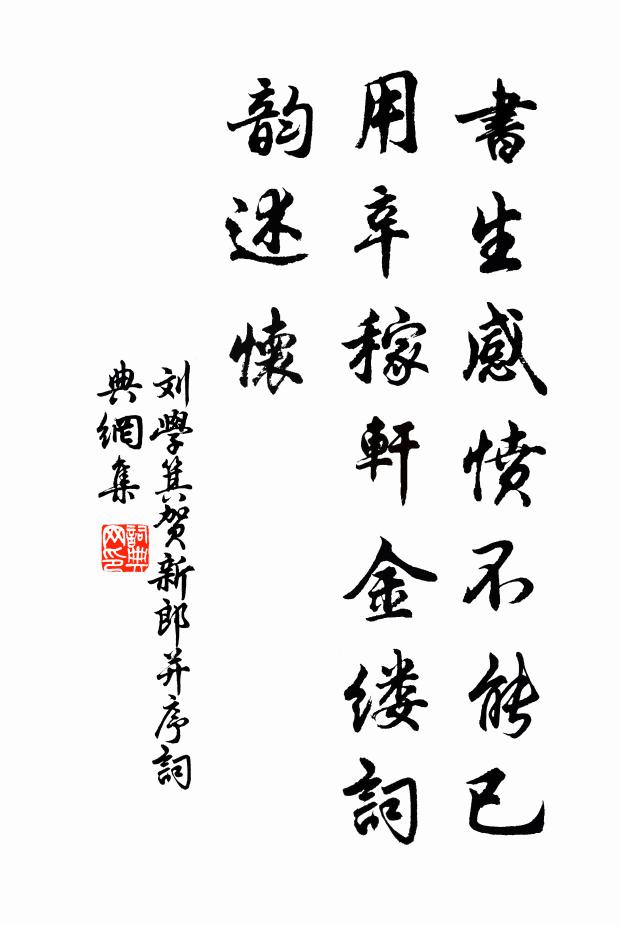 書生感憤不能已
用辛稼軒金缕詞
韵述懷
刘學箕贺新郎并序詞
典網集
詞典
网印